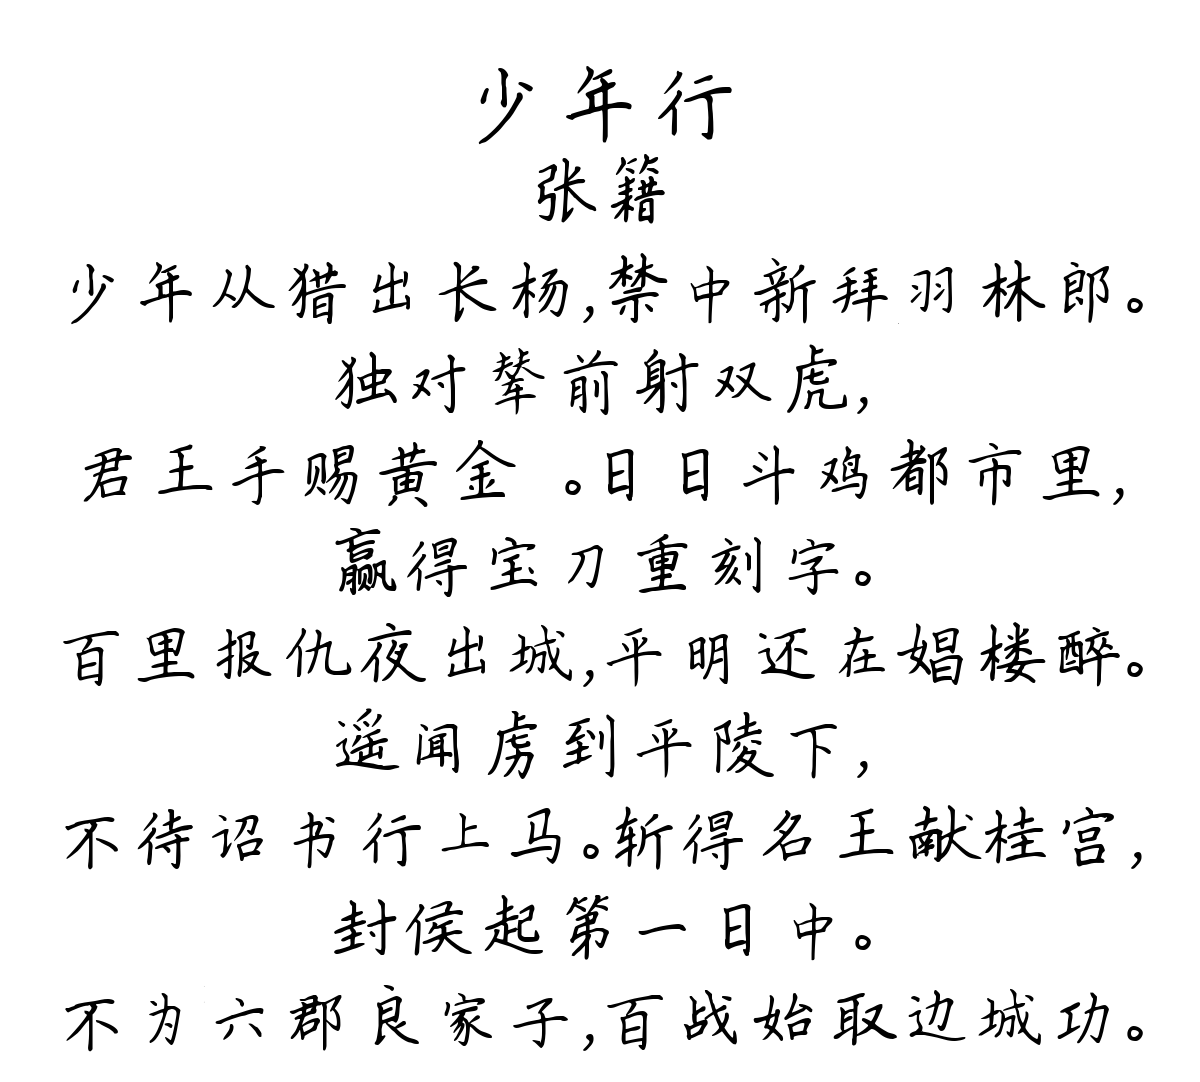 少年行
张籍
少年从猎出长杨,禁中新拜羽林郎。
独对辇前射双虎,
君王手赐黄金 。日日斗鸡都市里,
赢得宝刀重刻字。
百里报仇夜出城,平明还在娼楼醉。
遥闻虏到平陵下,
不待诏书行上马。斩得名王献桂宫,
封侯起第一日中。
不为六郡良家子,百战始取边城功。